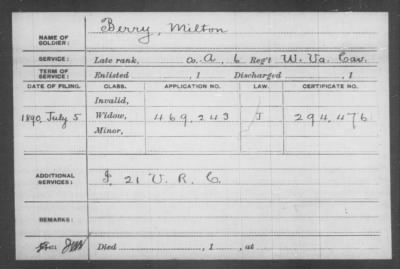 NAME OF SOLDIER: Berry, Milton
SERVICE: Late rank, Co. A, 6 Reg't W. Va. Cav.
TERM OF SERVICE: Enlisted , 1 Discharged , 1
DATE OF FILING. CLASS. APPLICATION NO. LAW. CERTIFICATE NO.
Invalid,
1890, July 5 Widow, 469,243 J 294,476
Minor,
ADDITIONAL SERVICES: I 21 V. R. C.
REMARKS:
Died , 1 , at